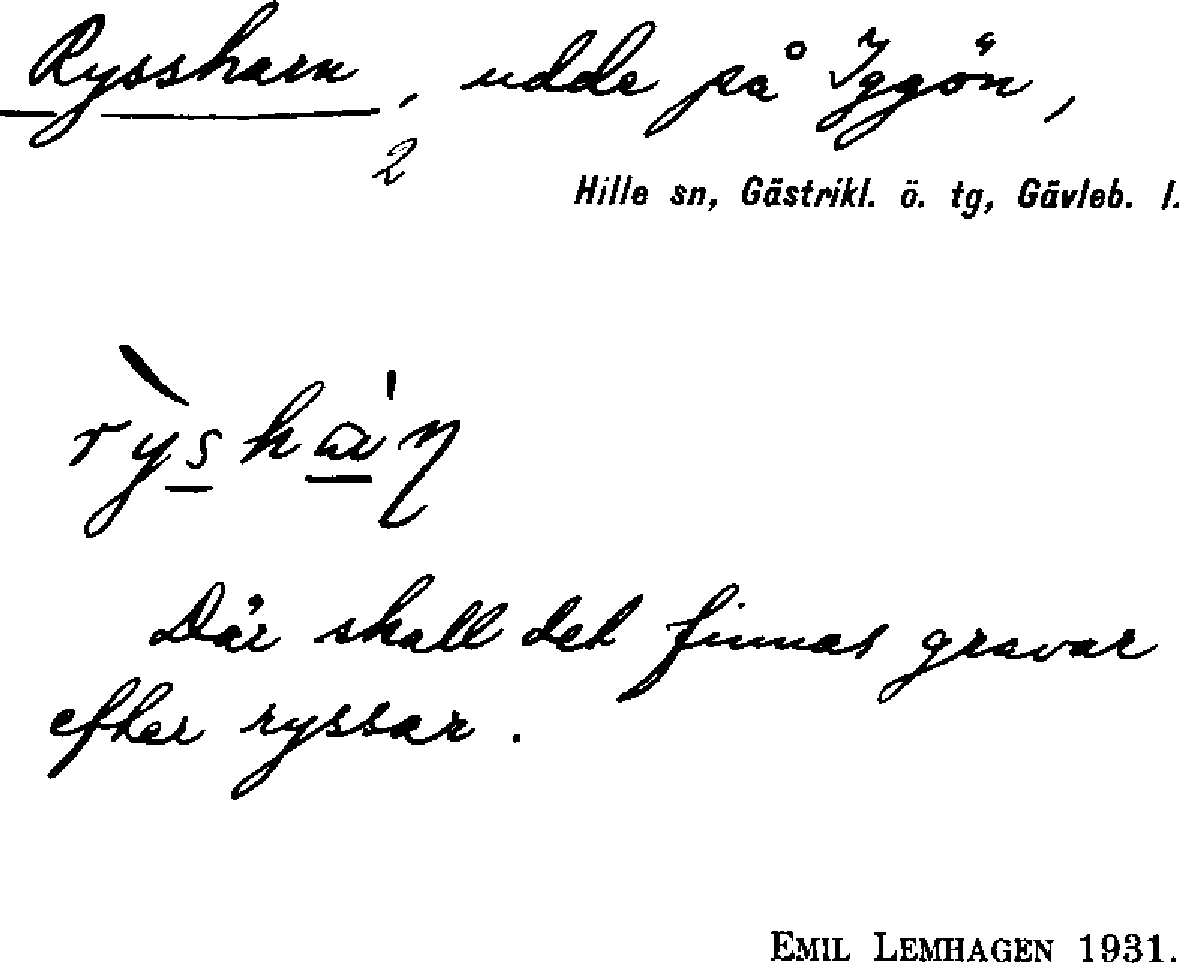 Ryssharn, udde på Iggön,
2
Hille sn, Gästrikl. ö. tg, Gävleb. l.
Där skall det finnas gravar
efter ryssar.
EMIL LEMHAGEN 1931.